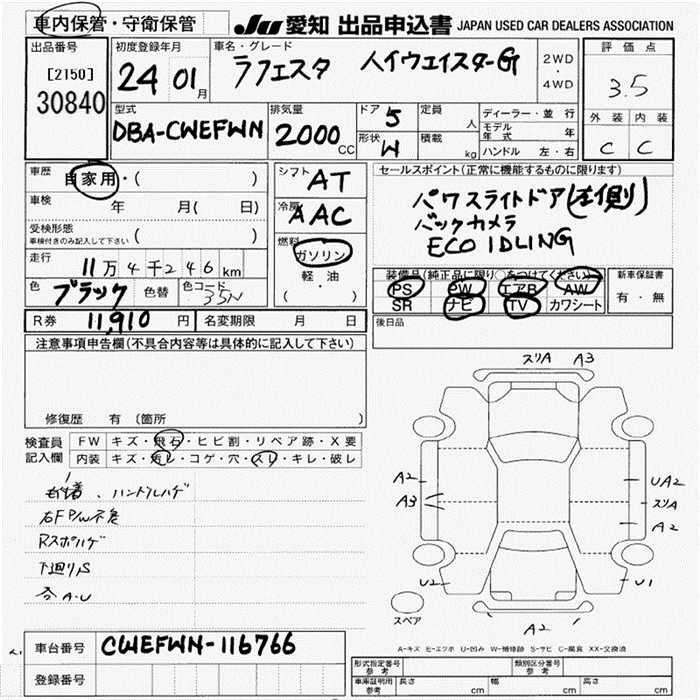 車内保管・守衛保管
JU 愛知 出品申込書 JAPAN USED CAR DEALERS ASSOCIATION
出品番号
[2150]
30840
初度登録年月
24 01月
車名・グレード
ラフェスタ ハイウェイスターG
2WD・4WD
評価点
3.5
外装 内装
C C
型式
DBA-CWEFWN
排気量
2000 CC
ドア 5
形状 W
定員 人
積載 kg
ディーラー・並行
モデル年式 年
ハンドル 左・右
車歴 自家用・( )
車検 年 月( 日)
受検形態
車検付きのみ記入して下さい ( )
走行 11万4千246km
色 ブラック 色替 色コード 35N
R券 11,910円 名変期限 月 日
シフト AT
冷房 AAC
燃料 ガソリン
軽・油
( )
セールスポイント(正常に機能するものに限ります)
パワスライドドア(左側)
バックカメラ
ECO IDLING
装備品(純正品に限り○をつけてください)
PS PW エアB AW
SR ナビ TV カワシート
新車保証書
有・無
後日品
注意事項申告欄(不具合内容等は具体的に記入して下さい)
修復歴 有 (箇所 )
検査員記入欄
FW キズ・飛石・ヒビ割・リペア跡・X要
内装 キズ・汚レ・コゲ・穴・スリ・キレ・破レ
ハンドルハゲ
右F P/W不良
Rスポハゲ
下廻りS
各A・U
スリA A3
A2
A3
UA2
スリA
A2
U2
U1
A2
スペア
A-キズ E-エクボ U-凹み W-補修跡 S-サビ C-腐食 XX-交換済
車台番号 CWEFWN-116766
登録番号
形式指定番号 参考
類別区分番号 参考
車庫証明用 参考 長さ cm 幅 cm 高さ cm